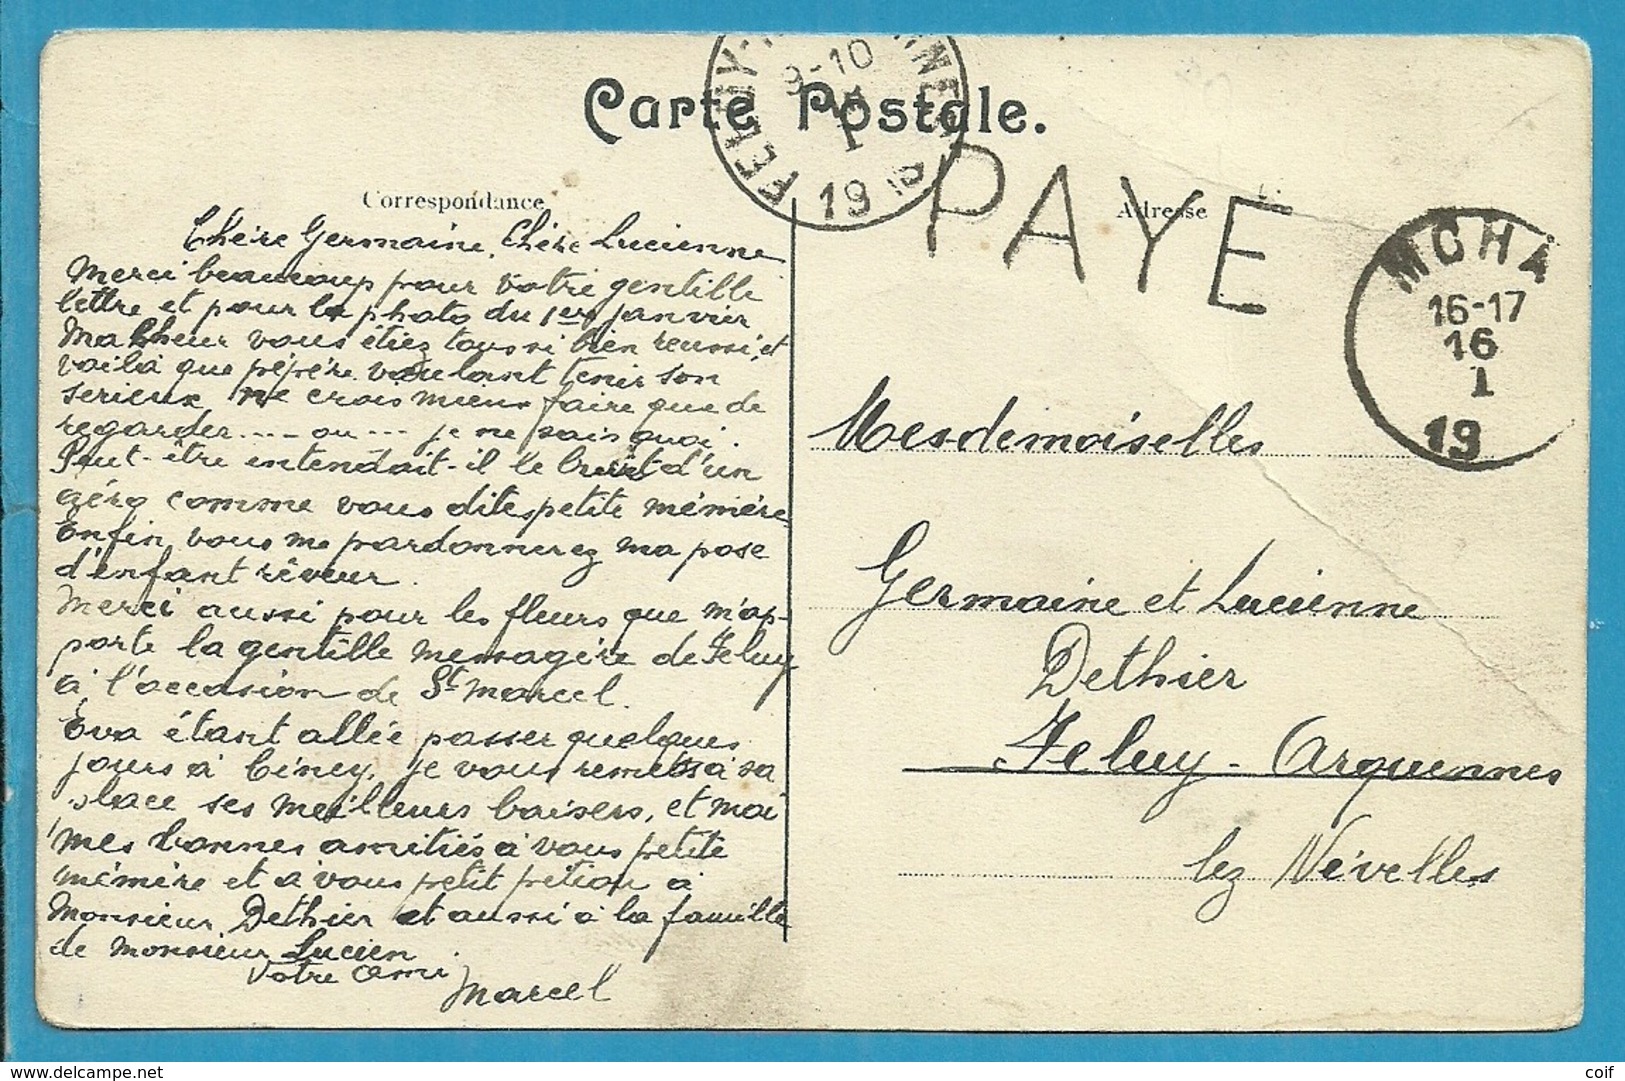 Carte Postale.
FELUY-A NNE
9-10
1
19
PAYE
Correspondance
Adresse
MCHA
16-17
16
1
19
Chère Germaine, Chère Lucienne
Merci beaucoup pour votre gentille
lettre et pour la photo du 1er janvier
Malheur vous étiez tous si bien reussi, et
voilà que pépère voulant tenir son
serieux ne crois mieux faire que de
regarder .... ou ... je ne sais quoi.
Peut-être entendait-il le bruit d'un
aéro comme vous dites petite mémère
Enfin vous me pardonnerez ma pose
d'enfant rêveur.
Merci aussi pour les fleurs que m'ap-
porte la gentille messagère de Feluy
à l'occasion de St Marcel.
Eva étant allée passer quelques
jours à Ciney, je vous remets à sa
place ses meilleurs baisers, et moi
mes bonnes amitiés à vous petite
mémère et à vous petit à
Monsieur Dethier et aussi à la famille
de Monsieur Lucien.
Votre ami
Marcel
Mesdemoiselles
Germaine et Lucienne
Dethier
Feluy - Arquennes
lez Nivelles
delcampe.net
coif